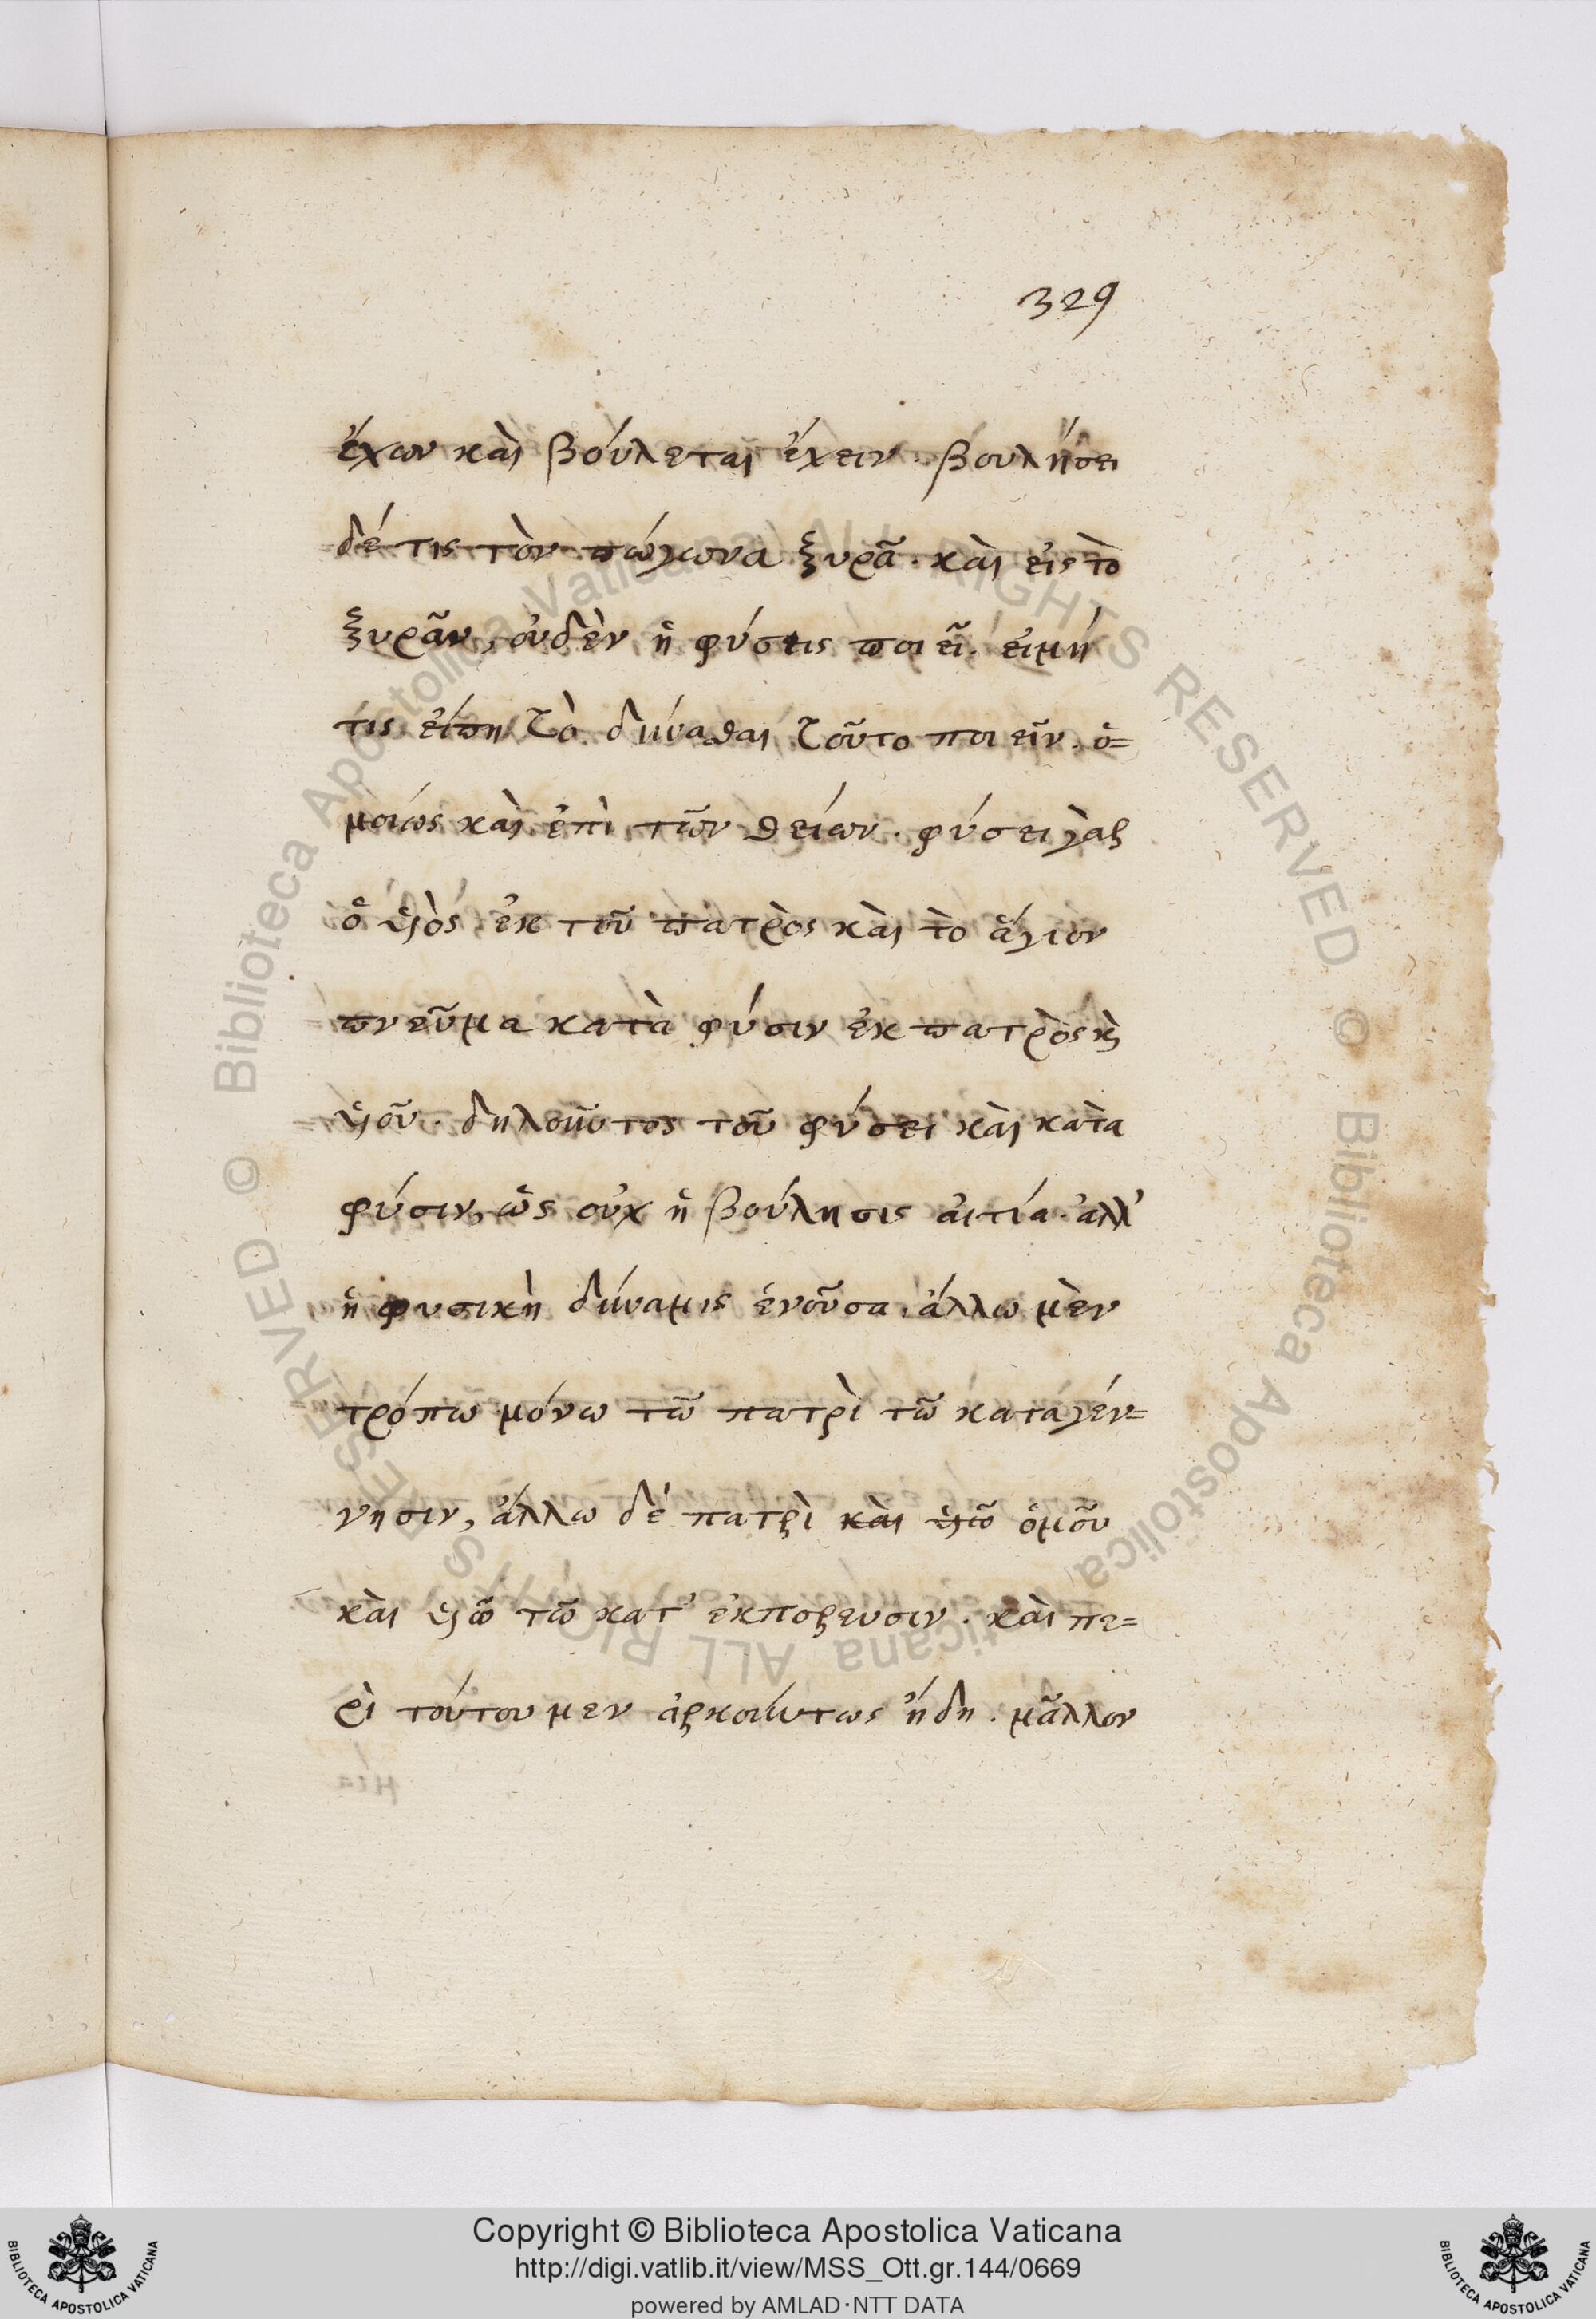 329
ἔχων καὶ βούλεται ἔχειν. βουλήσει
δέ τις τὸν πώγωνα ξυρᾶ. καὶ εἰς τὸ
ξυρᾶν, οὐδὲν ἡ φύσις ποιεῖ. εἰμή
τις εἴπη τὸ δύνασθαι τοῦτο ποιεῖν. ὁ=
μοίως καὶ ἐπὶ τῶν θείων. φύσει γὰρ
ὁ υἱὸς ἐκ τοῦ πατρὸς καὶ τὸ ἅγιον
πνεῦμα κατὰ φύσιν ἐκ πατρὸς κὶ
υἱοῦ. δηλοῦντος τοῦ φύσει καὶ κατὰ
φύσιν, ὡς οὐχ ἡ βούλησις αἰτία. ἀλλ'
ἡ φυσικὴ δύναμις ἐνοῦσα. ἄλλω μὲν
τρόπω μόνω τῶ πατρὶ τῶ κατὰ γέν=
νησιν, ἄλλω δὲ πατρὶ καὶ υἱῶ ὁμοῦ
καὶ υἱῶ τῶ κατ' ἐκπόρευσιν. καὶ πε=
ρὶ τούτου μεν ἀρκούντως ἤδη. μᾶλλον
Copyright © Biblioteca Apostolica Vaticana
http://digi.vatlib.it/view/MSS_Ott.gr.144/0669
powered by AMLAD·NTT DATA
BIBLIOTECA APOSTOLICA VATICANA
BIBLIOTECA APOSTOLICA VATICANA
© Biblioteca Apostolica Vaticana ALL RIGHTS RESERVED
© Biblioteca Apostolica Vaticana ALL RIGHTS RESERVED